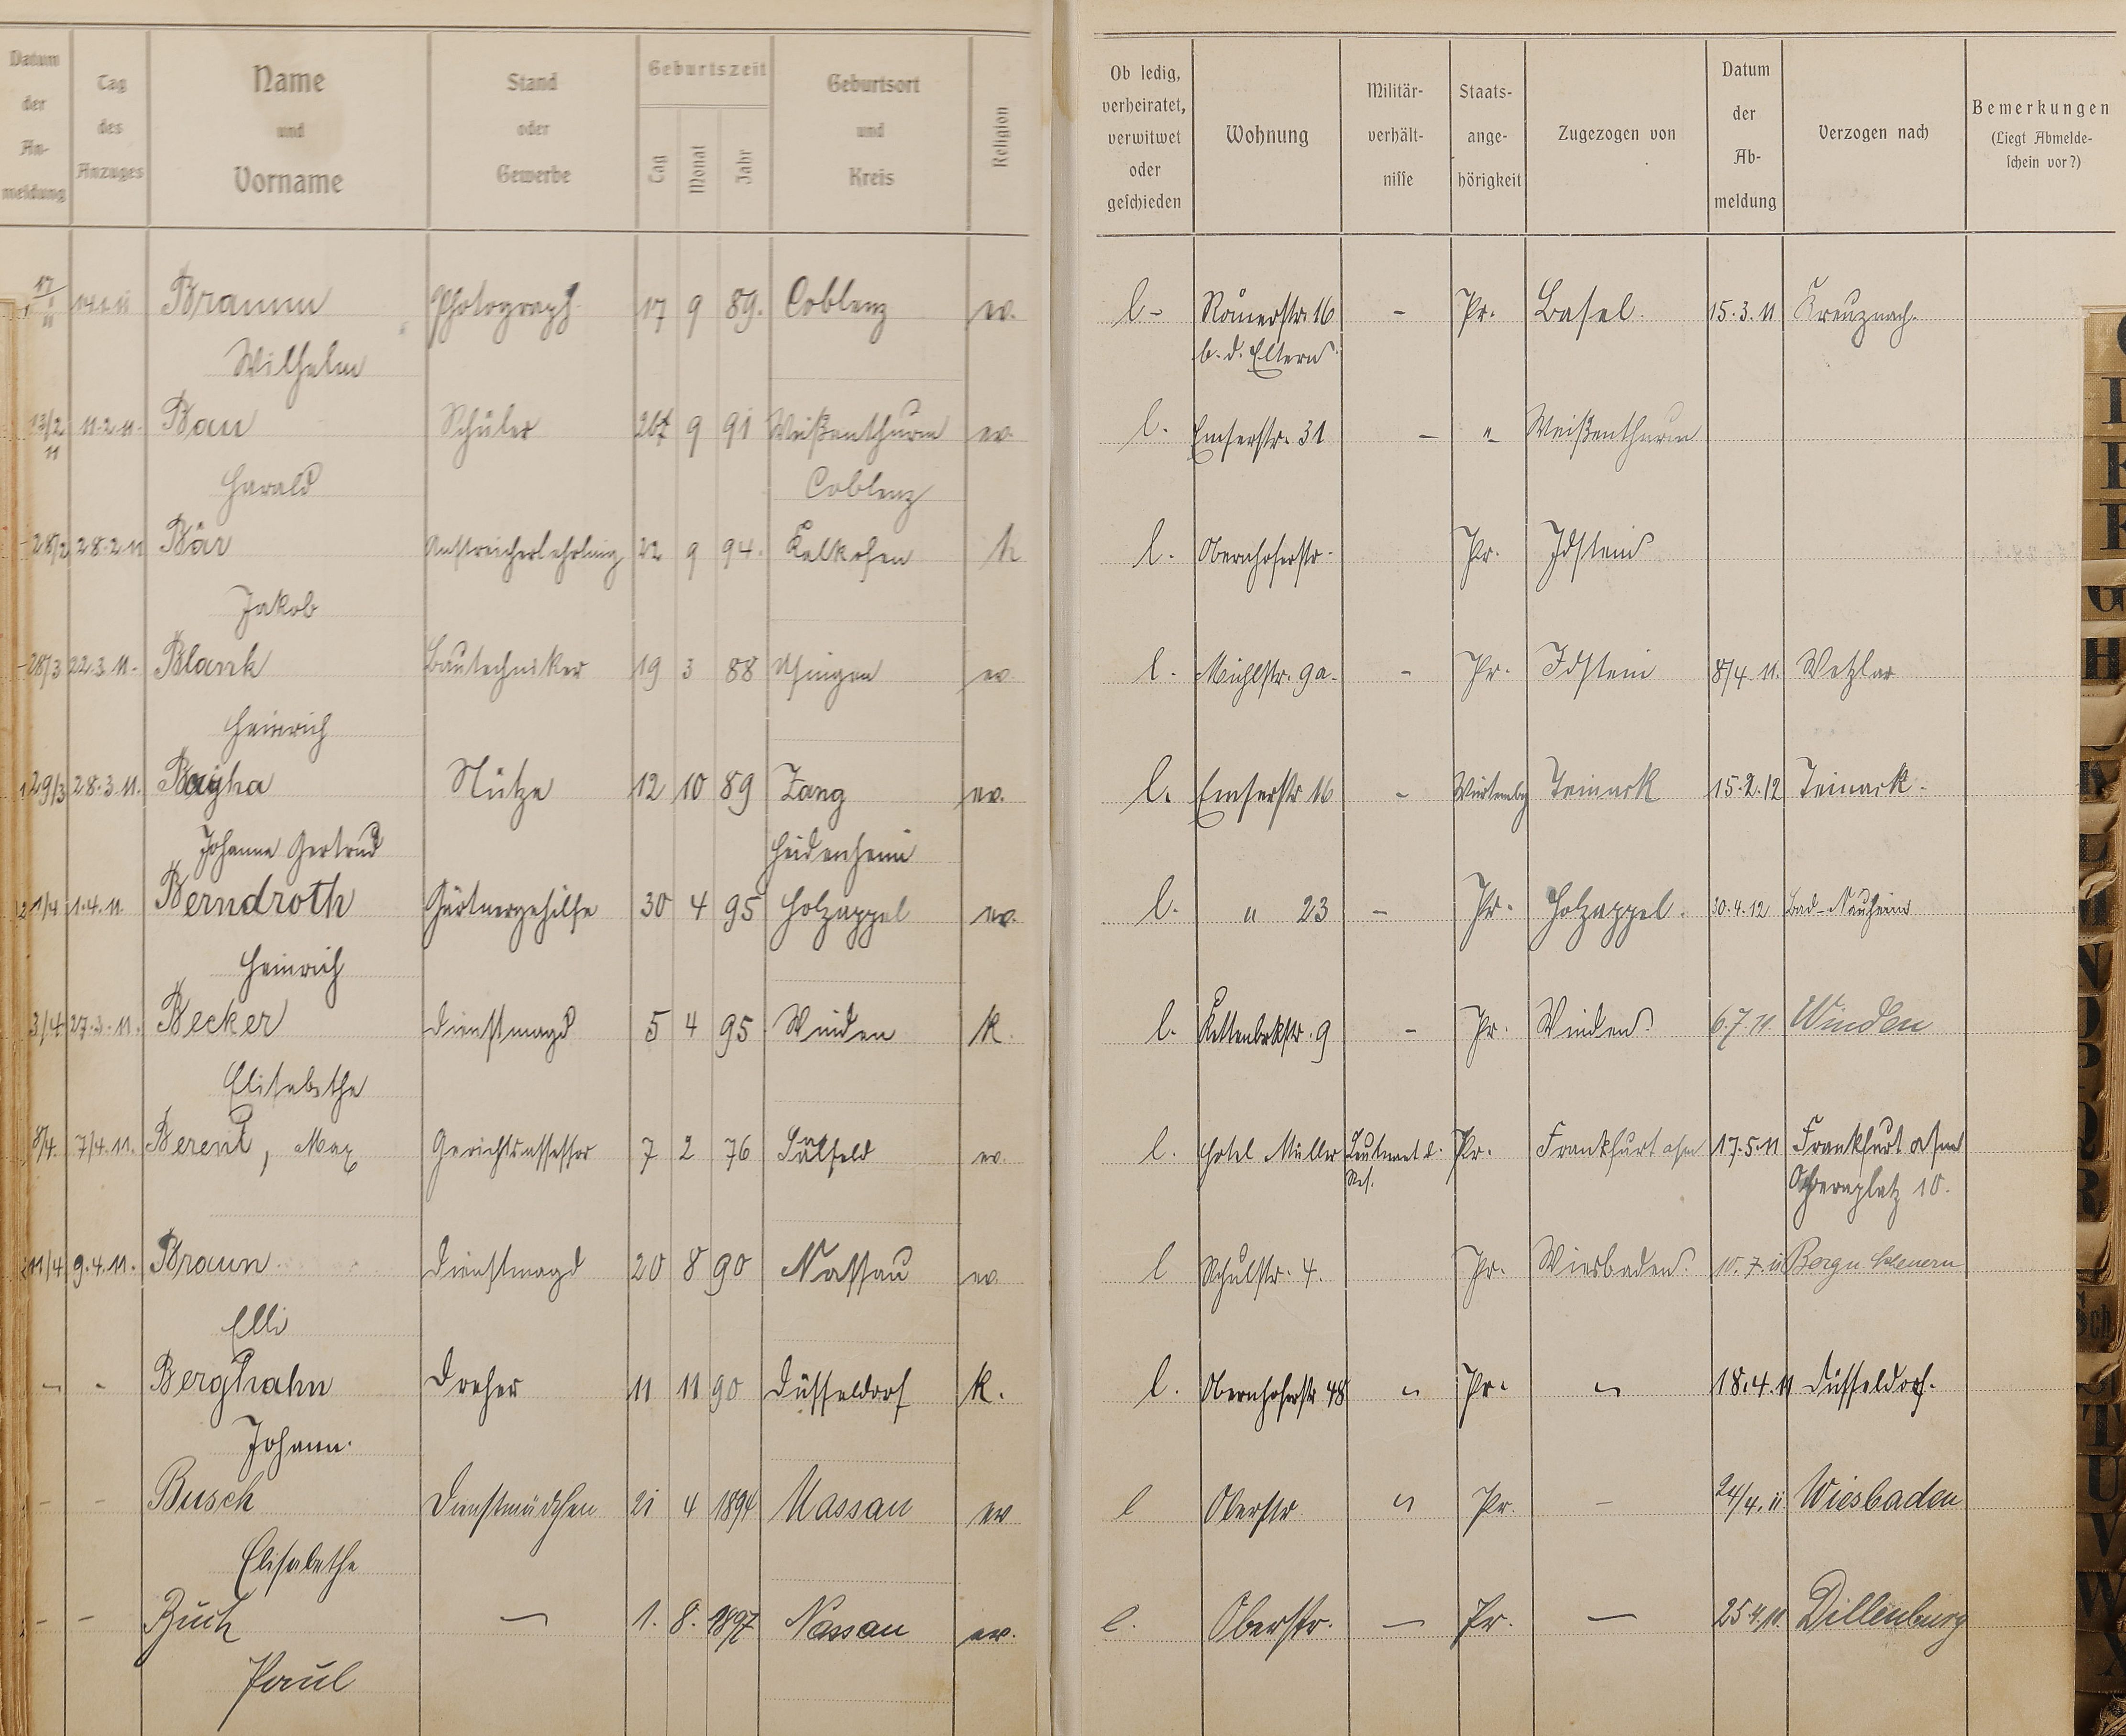 Datum der Anmeldung Tag des Anzuges Name und Vorname Stand oder Gewerbe Geburtszeit Tag Monat Jahr Geburtsort und Kreis Religion Ob ledig, verheiratet, verwitwet oder geschieden Wohnung Militärverhältnisse Staatsangehörigkeit Zugezogen von Datum der Abmeldung Verzogen nach Bemerkungen (Liegt Abmeldeschein vor?)
17/1 11 14.1.11 Photograph 17 9 89. Coblenz ev. l- Römerstr. 16 - Pr. Basel. 15.3.11 Kreuznach.
Wilhelm b. d. Eltern
13/2 11 11.2.11. Bau Schüler 9 91 Weißenthurm ev. l. Emserstr. 31 - " Weißenthurm
Harald Coblenz
28/2 28.2.11 Bär Anstreicherlehrling 22 9 94. Kalkofen l. Obernhoferstr. Pr. Idstein
Jakob
28/3 22.3.11. Blank Bautechniker 19 3 88 Usingen ev. l. Mühlstr. 9a. - Pr. Idstein 8/4 11. Wetzlar
Heinrich
29/3 28.3.11. Stütze 12 10 89 Zang ev. l. Emserstr. 16 - Würtembg 15.2.12
Johanna Gertrud Heidenheim
1/4 1.4.11. Berndroth Gärtnergehilfe 30 4 95 Holzappel ev. l. " 23 - Pr. Holzappel. 30.4.12 Bad-Nauheim
Heinrich
3/4 27.3.11. Becker Dienstmagd 5 4 95 Winden k. l. Kettenbrckstr. 9 - Pr. Winden 6.7.11. Winden
Elisabethe
8/4. 7/4.11. Berent, Max Gerichtsassessor 7 2 76 Sàlfeld ev. l. Hotel Müller Leutnant d. Res. Pr. Frankfurt a/m 17.5.11 Frankfurt a/m
Opernplatz 10.
11/4 9.4.11. Braun Dienstmagd 20 8 90 Nassau ev. l Schulstr. 4. Pr. Wiesbaden. 10.7.11 Bergn. Scheuern
Elli
- - Berghahn Dreher 11 11 90 Düsseldorf k. l. Obernhoferstr. 48 " Pr. " 18.4.11 Düsseldorf.
Johann.
- - Busch Dienstmädchen 21 4 1894 Nassau ev l Oberstr. " Pr. - 24/4.11 Wiesbaden
Elisabethe
- - Buch - 1. 8. 1897 Nassau ev. l. Oberstr. - Pr. - 25.4.11. Dillenburg
Paul